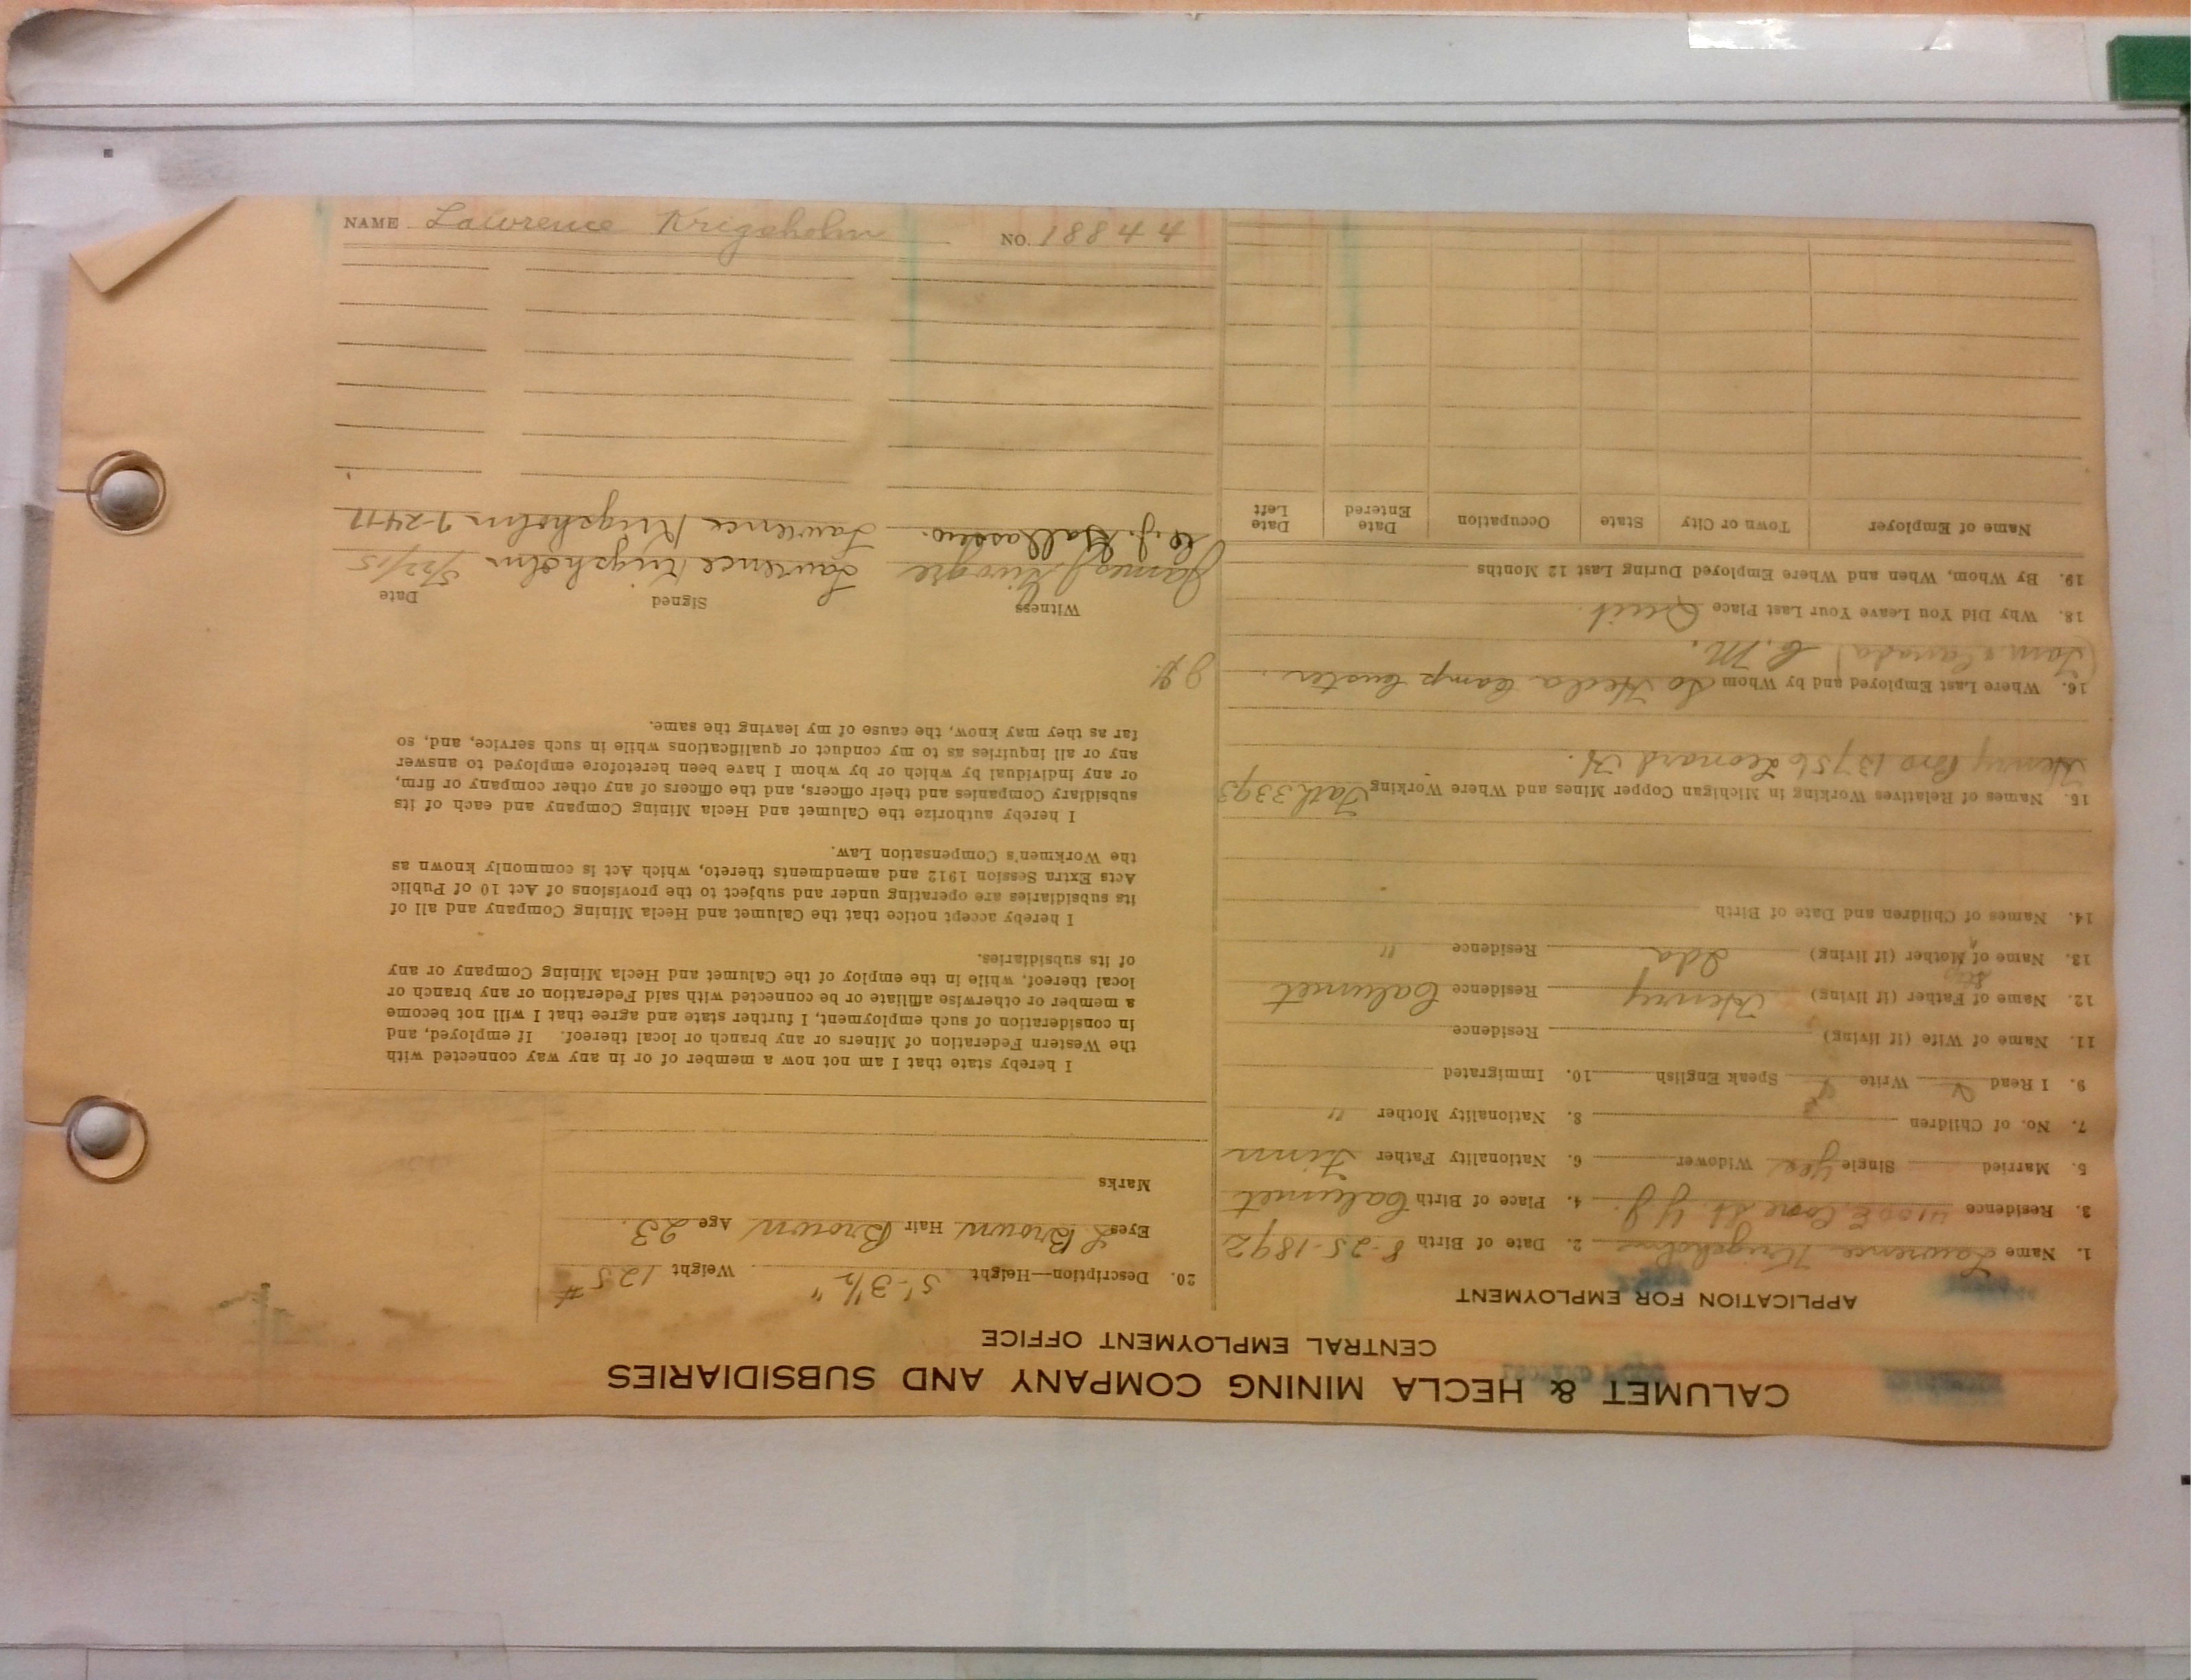 CALUMET & HECLA MINING COMPANY AND SUBSIDIARIES
CENTRAL EMPLOYMENT OFFICE
APPLICATION FOR EMPLOYMENT
1. Name Lawrence Krigsholm 2. Date of Birth 8-25-1892
3. Residence 4100 E. Cone St. Y.J. 4. Place of Birth Calumet
5. Married Single Yes Widower 6. Nationality Father Finn
7. No. of Children 8. Nationality Mother "
9. I Read Write Speak English 10. Immigrated
11. Name of Wife (if living) Residence
12. Name of Father (if living) Henry Residence Calumet
Step
13. Name of Mother (if living) Ida Residence "
14. Names of Children and Date of Birth
15. Names of Relatives Working in Michigan Copper Mines and Where Working Fath 3393
Henry Bro 13756 Leonard St.
16. Where Last Employed and by Whom So Hecla Camp Custer
C.M.
18. Why Did You Leave Your Last Place Quit.
19. By Whom, When and Where Employed During Last 12 Months
Name of Employer Town or City State Occupation Date Entered Date Left
20. Description—Height 5'-3½" Weight 125#
Eyes L Brown Hair Brown Age 23.
Marks
I hereby state that I am not now a member of or in any way connected with
the Western Federation of Miners or any branch or local thereof. If employed, and
in consideration of such employment, I further state and agree that I will not become
a member or otherwise affiliate or be connected with said Federation or any branch or
local thereof, while in the employ of the Calumet and Hecla Mining Company or any
of its subsidiaries.
I hereby accept notice that the Calumet and Hecla Mining Company and all of
its subsidiaries are operating under and subject to the provisions of Act 10 of Public
Acts Extra Session 1912 and amendments thereto, which Act is commonly known as
the Workmen's Compensation Law.
I hereby authorize the Calumet and Hecla Mining Company and each of its
subsidiary Companies and their officers, and the officers of any other company or firm,
or any individual by which or by whom I have been heretofore employed to answer
any or all inquiries as to my conduct or qualifications while in such service, and, so
far as they may know, the cause of my leaving the same.
Witness Signed Date
James Lawrence Krigsholm 5/22/15
Lawrence Krigsholm 7-24-17
NAME Lawrence Krigsholm NO. 18844